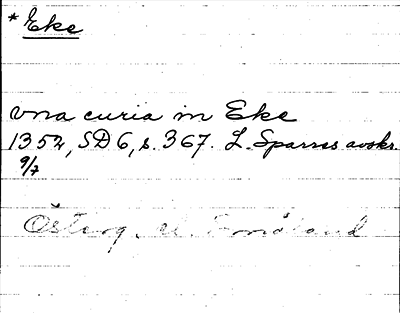 * Eke
vna curia in Eke
1352, SD 6, s. 367. L. Sparres avskr.
9/7
Österg.